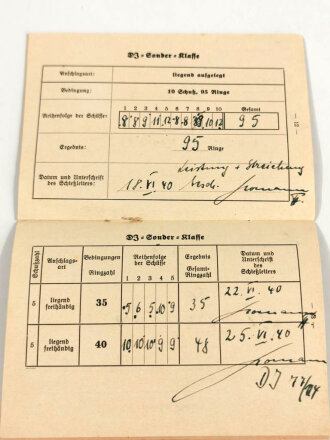 DJ-Sonder-Klasse
Anschlagsart: liegend aufgelegt
Bedingung: 10 Schuß, 95 Ringe
1 2 3 4 5 6 7 8 9 10 Gesamt
Reihenfolge der Schüsse: 8 8 9 11 12 8 8 10 12 95
Ergebnis: 95 Ringe
Datum und Unterschrift des Schießleiters: 18. VI. 40
DJ-Sonder-Klasse
Schußzahl Anschlagsart Bedingungen Ringzahl Reihenfolge der Schüsse 1 2 3 4 5 Ergebnis Gesamt-Ringzahl Datum und Unterschrift des Schießleiters
5 liegend freihändig 35 5 6 5 10 9 35 22. VI. 40
5 liegend freihändig 40 10 10 10 9 9 48 25. VI. 40
DJ